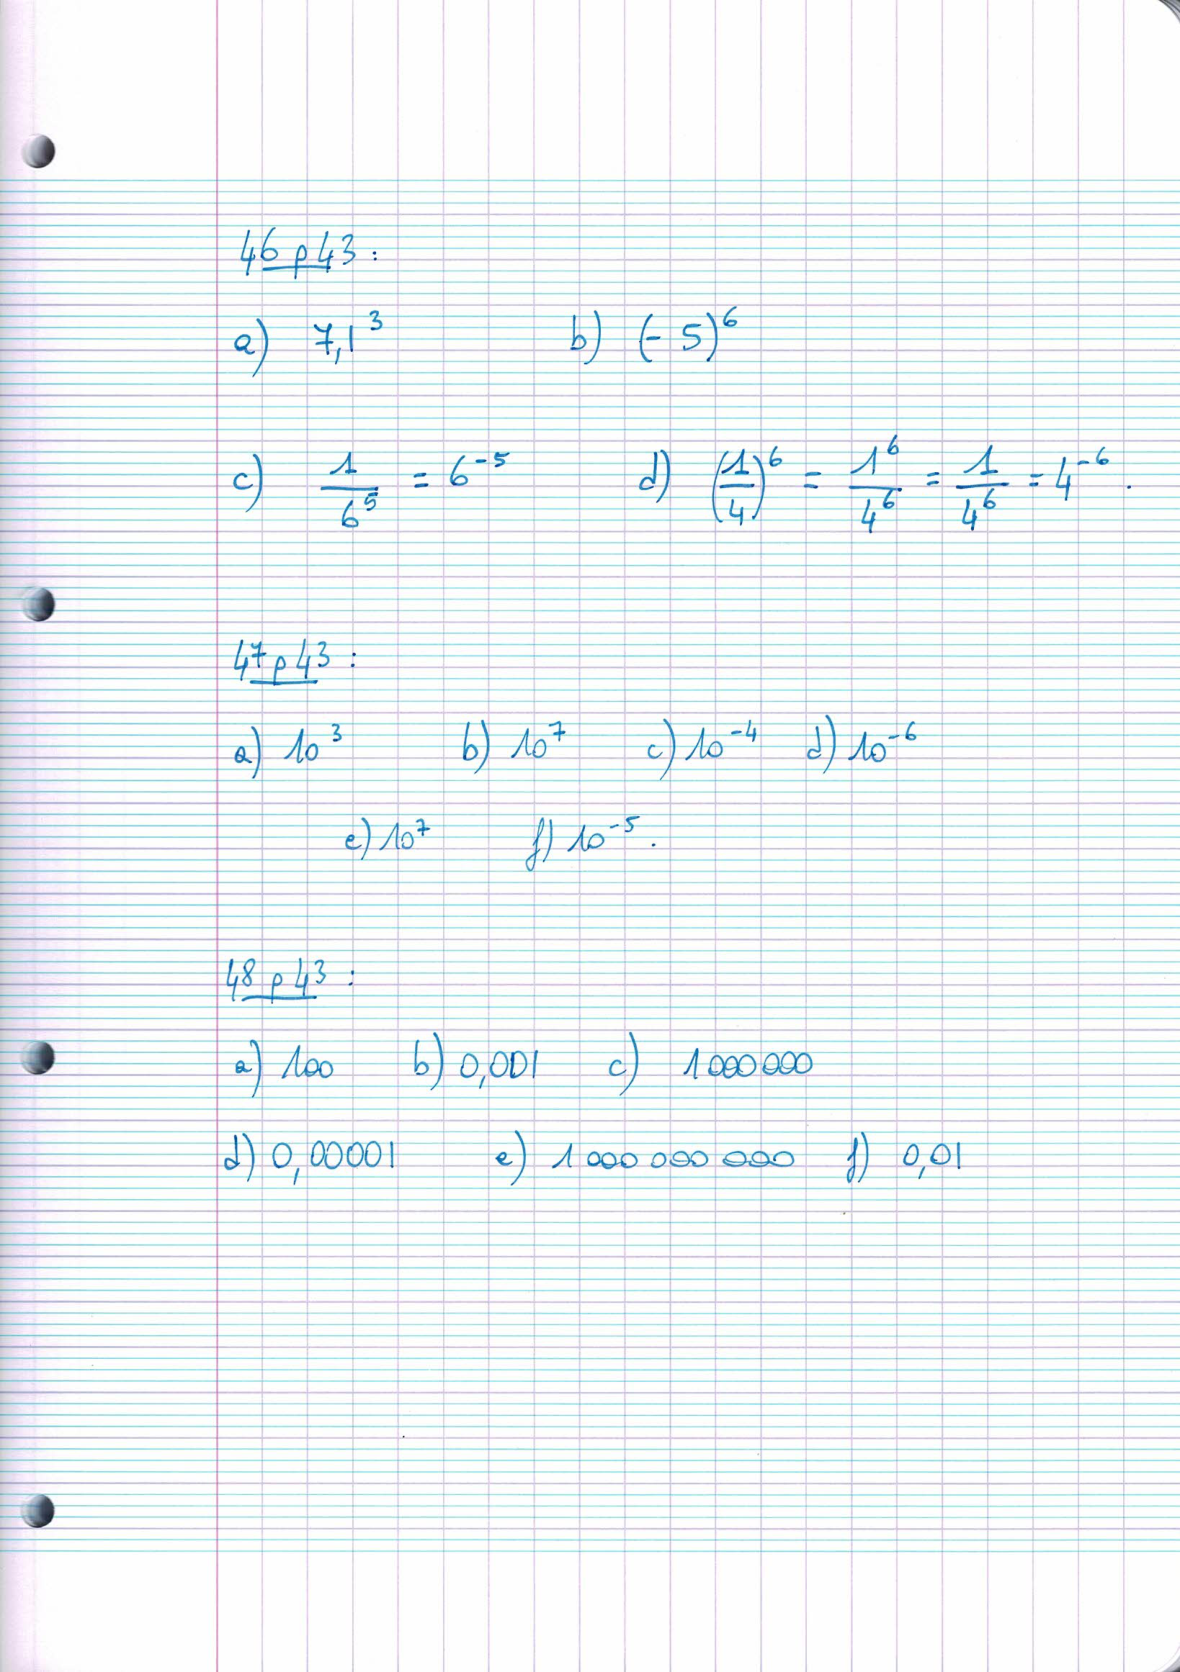 46 p 43 :
a) 7,1³ b) (- 5)⁶
c) 1/6⁵ = 6⁻⁵ d) (1/4)⁶ = 1⁶/4⁶ = 1/4⁶ = 4⁻⁶ .
47 p 43 :
a) 10³ b) 10⁷ c) 10⁻⁴ d) 10⁻⁶
e) 10⁷ f) 10⁻⁵ .
48 p 43 :
a) 100 b) 0,001 c) 1 000 000
d) 0,00001 e) 1 000 000 000 f) 0,01